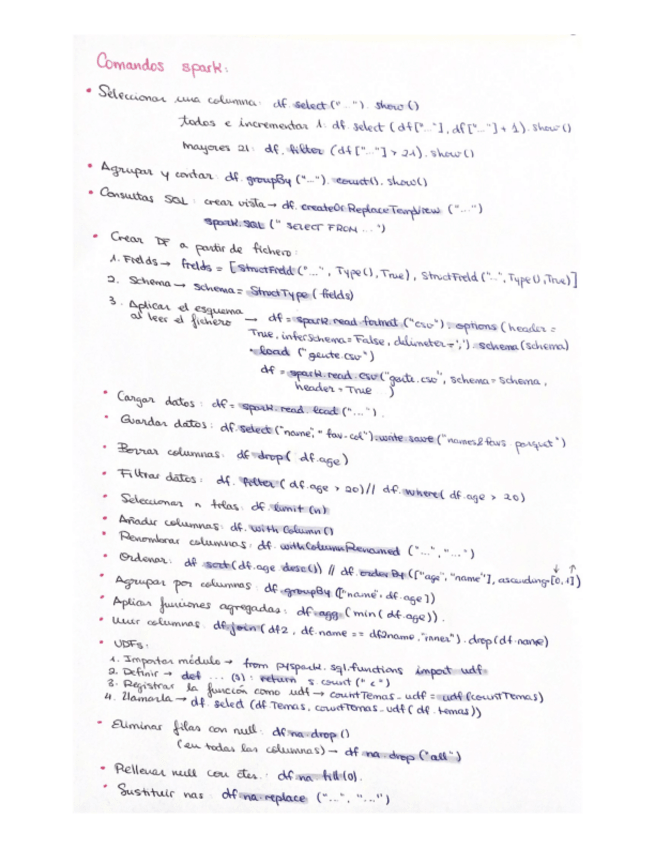 Comandos spark:
• Seleccionar una columna: df.select("...").show()
todos e incrementar 1: df.select(df["..."], df["..."]+1).show()
mayores 21: df.filter(df["..."] > 21).show()
• Agrupar y contar: df.groupBy("...").count().show()
• Consultas SQL: crear vista → df.createOrReplaceTempView("...")
spark.sql("SELECT FROM ...")
• Crear DF a partir de fichero:
1. Fields → fields = [StructField("...", Type(), True), StructField("...", Type(), True)]
2. Schema → schema = StructType(fields)
3. Aplicar el esquema al leer el fichero → df = spark.read.format("csv").options(header =
True, inferSchema=False, delimeter=',').schema(schema)
.load("gente.csv")
df = spark.read.csv("gente.csv", schema=schema,
header=True )
• Cargar datos: df = spark.read.load("...").
• Guardar datos: df.select("name", "fav.col").write.save("names&favs.parquet")
• Borrar columnas: df.drop(df.age)
• Filtrar datos: df.filter(df.age > 20) // df.where(df.age > 20)
• Seleccionar n filas: df.limit(n)
• Añadir columnas: df.withColumn()
• Renombrar columnas: df.withColumnRenamed("...", "...")
• Ordenar: df.sort(df.age.desc()) // df.orderBy(["age", "name"], ascending=[0,1]) ↓ ↑
• Agrupar por columnas: df.groupBy(["name", df.age])
• Aplicar funciones agregadas: df.agg(min(df.age)).
• Unir columnas: df.join(df2, df.name == df2name, "inner").drop(df.name)
• UDFs:
1. Importar módulo → from pyspark.sql.functions import udf
2. Definir → def ... (s): return s.count("<")
3. Registrar la función como udf → countTemas_udf = udf(countTemas)
4. Llamarla → df.select(df.Temas, countTemas_udf(df.temas))
• Eliminar filas con null: df.na.drop()
(en todas las columnas) → df.na.drop("all")
• Rellenar null con ctes: df.na.fill(0).
• Sustituir nas: df.na.replace("...", "...")